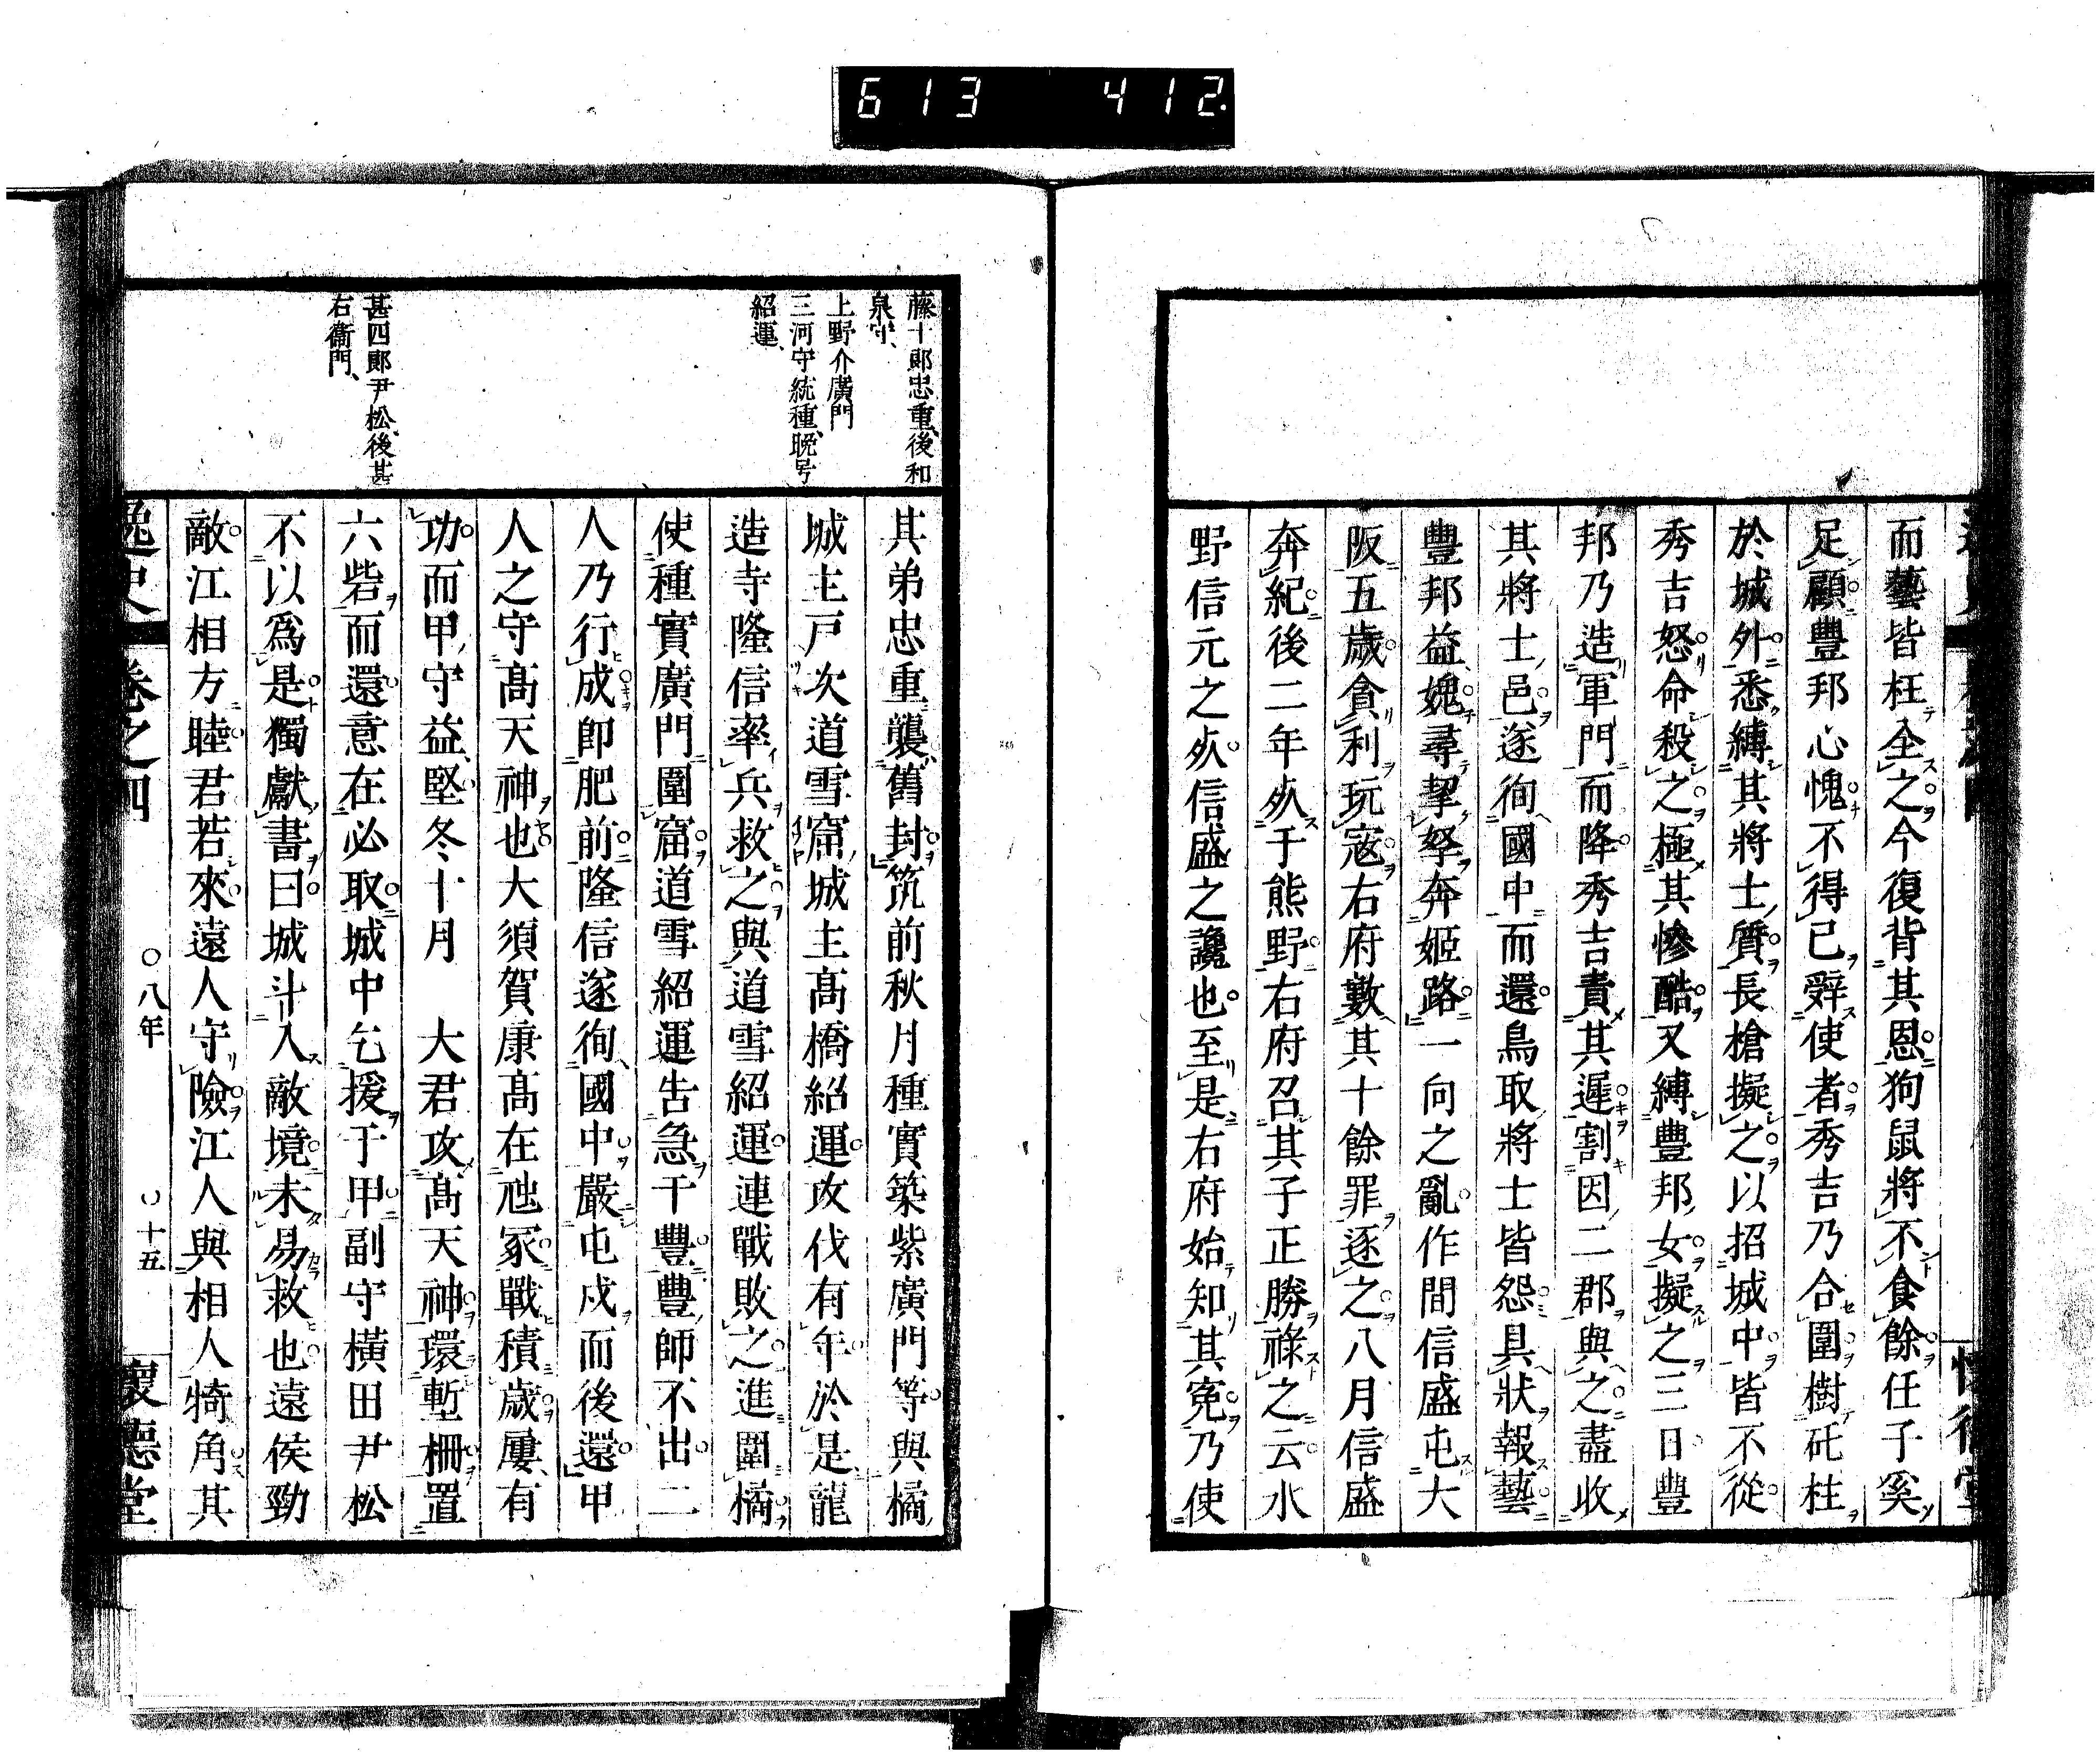 613 412
而藝皆枉全之今復背其恩狗鼠將不食餘任子奚
足顧豐邦心愧不得已辤使者秀吉乃合圍樹矺柱
於城外悉縛其將士質長槍擬之以招城中皆不從
秀吉怒命殺之極其慘酷又縛豐邦女擬之三日豐
邦乃造軍門而降秀吉責其遲割因二郡與之盡收
其將士邑遂徇國中而還鳥取將士皆怨具狀報藝
豐邦益媿尋挈孥奔姬路一向之亂作間信盛屯大
阪五歲貪利玩寇右府數其十餘罪逐之八月信盛
奔紀後二年㱙于熊野右府召其子正勝祿之云水
野信元之㱙信盛之讒也至是右府始知其冤乃使
藤十郎忠重、後和
泉守、
上野介廣門
三河守統種、晩号
紹運、
甚四郎尹松、後甚
右衞門、
其弟忠重襲舊封筑前秋月種實築紫廣門等與橘
城主戸次道雪窟城主髙橋紹運攻伐有年於是龍
造寺隆信率兵救之與道雪紹運連戰敗之進圍橘
使種實廣門圍窟道雪紹運告急于豐豐師不出二
人乃行成卽肥前隆信遂徇國中嚴屯戍而後還甲
人之守髙天神也大須賀康髙在馳冢戰積歲屢有
功而甲守益堅冬十月 大君攻髙天神環塹柵置
六砦而還意在必取城中乞援于甲副守橫田尹松
不以爲是獨獻書曰城斗入敵境未易救也遠侯勁
敵江相方睦君若來遠人守險江人與相人犄角其
逸史 卷之四 ○八年 ○十五 懷德堂